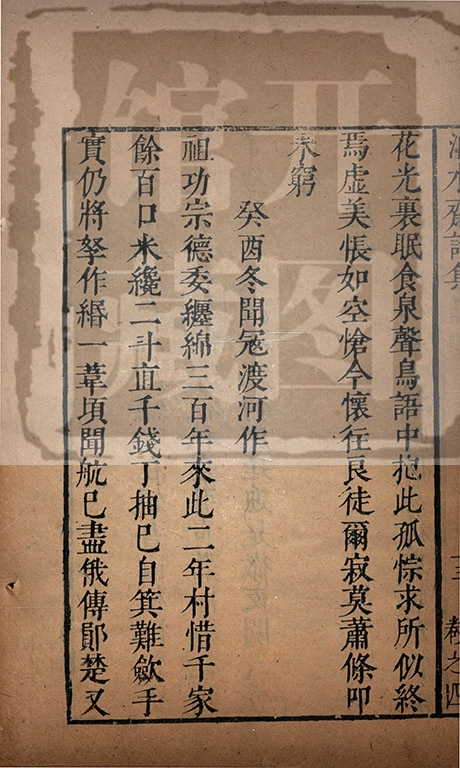 花光裏眠食泉聲鳥語中抱此孤悰求所似終
焉虛美悵如空愴今懷往良徒爾寂莫蕭條叩
未窮
癸酉冬聞寇渡河作
祖功宗德委纏綿三百年來此二年村惜千家
餘百口米纔二斗直千錢丁抽巳自箕難歛手
實仍將孥作緡一葦頃聞航巳盡俄傳鄖楚又
卷之四